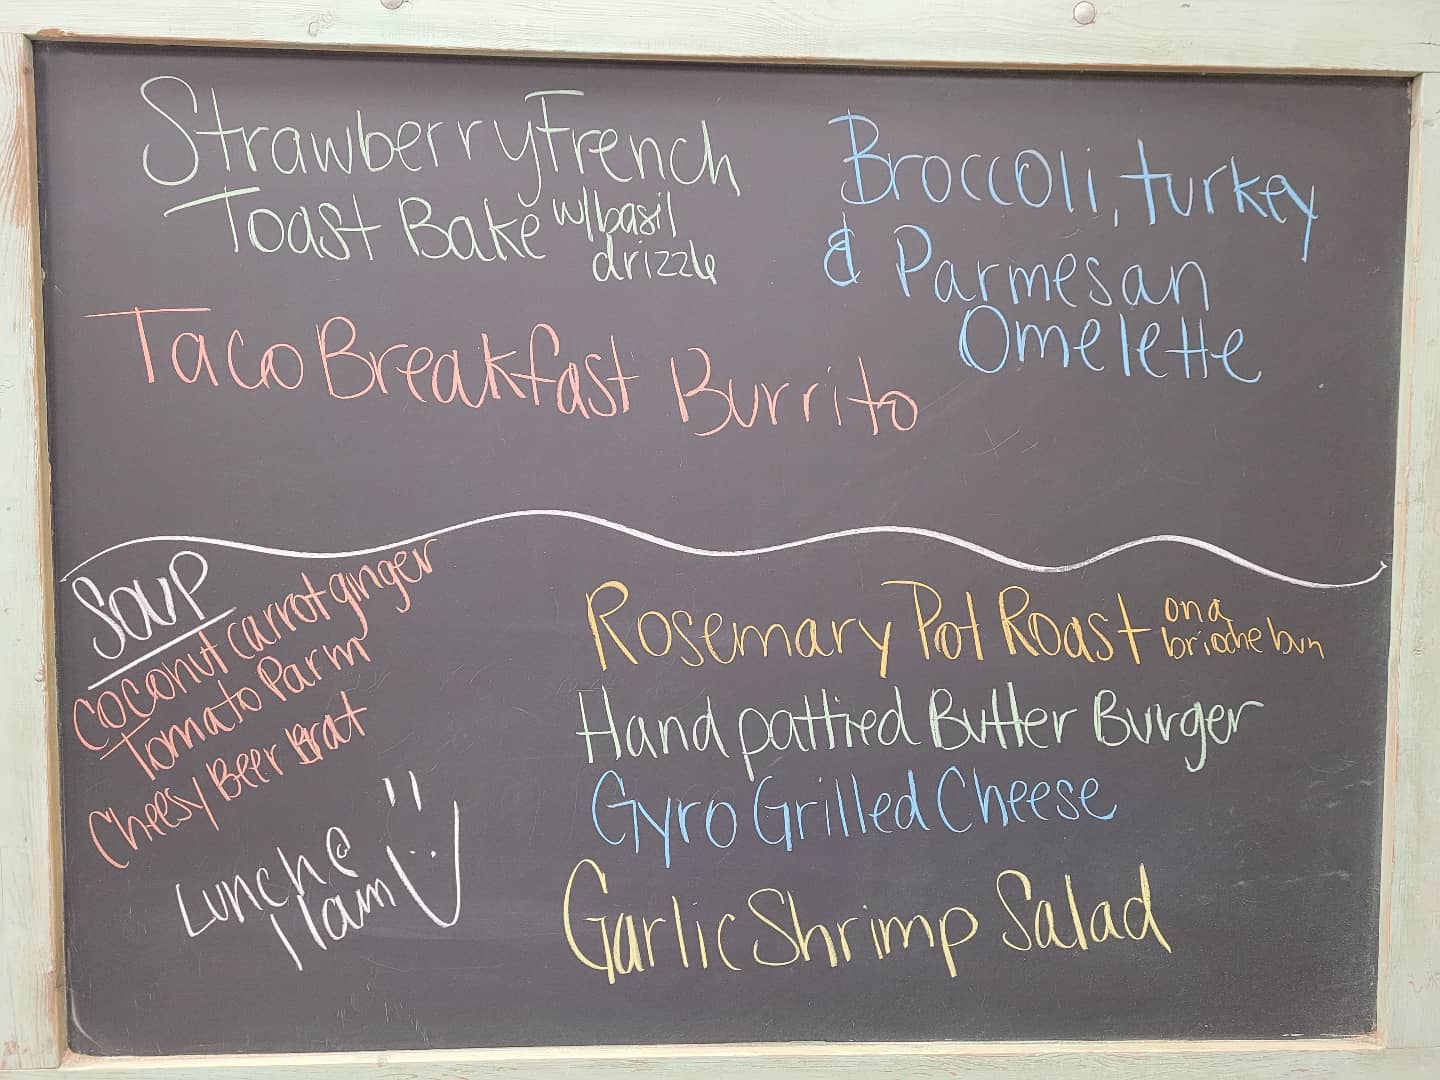 Strawberry French
Toast Bake w/basil
drizzle
Broccoli, turkey
& Parmesan
Omelette
Taco Breakfast Burrito
Soup
Coconut carrot ginger
Tomato Parm
Cheesy Beer Brat
Lunch @
11am
Rosemary Pot Roast on a
brioche bun
Hand pattied Butter Burger
Gyro Grilled Cheese
Garlic Shrimp Salad